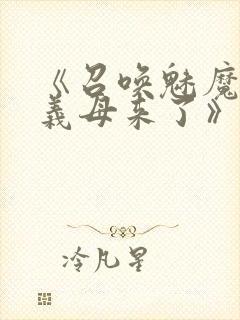 《召唤魅魔
義母来了》
冷凡星